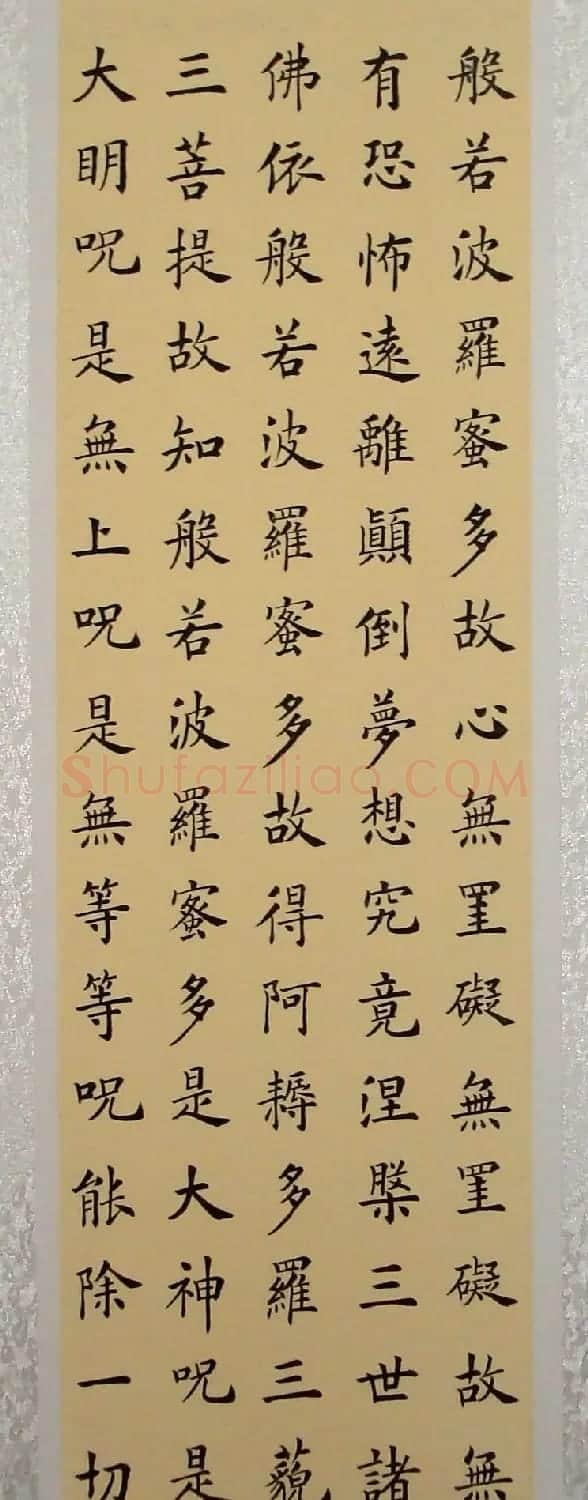 般若波羅蜜多故心無罣礙無罣礙故無
有恐怖遠離顛倒夢想究竟涅槃三世諸
佛依般若波羅蜜多故得阿耨多羅三藐
三菩提故知般若波羅蜜多是大神呪是
大明呪是無上呪是無等等呪能除一切
Shufaziliao.COM